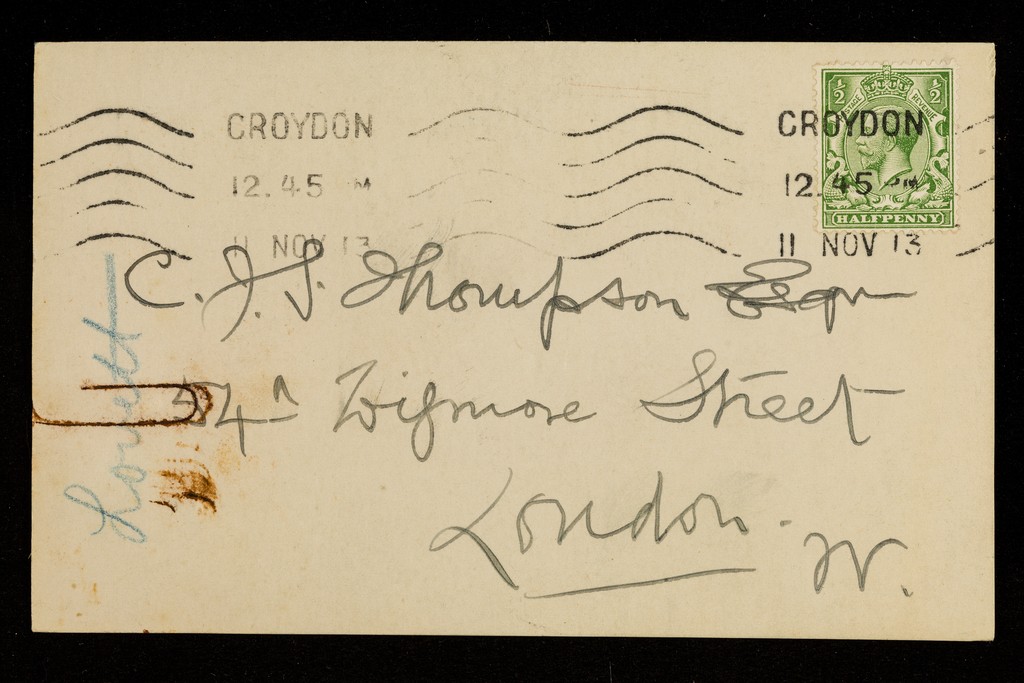 CROYDON
12.45 PM
11 NOV 13
CROYDON
12.45 PM
11 NOV 13
½ POSTAGE REVENUE ½
HALFPENNY
C. J. S. Thompson Esqr
54A Wigmore Street
London.
W.
Lovett